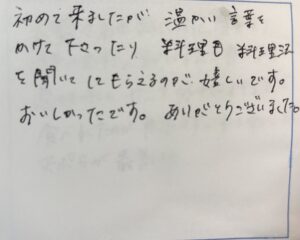 初めて来ましたが 温かい言葉を
かけて下さったり 料理も料理法
を聞いてしてもらえるのが嬉しいです。
おいしかったです。ありがとうございました。